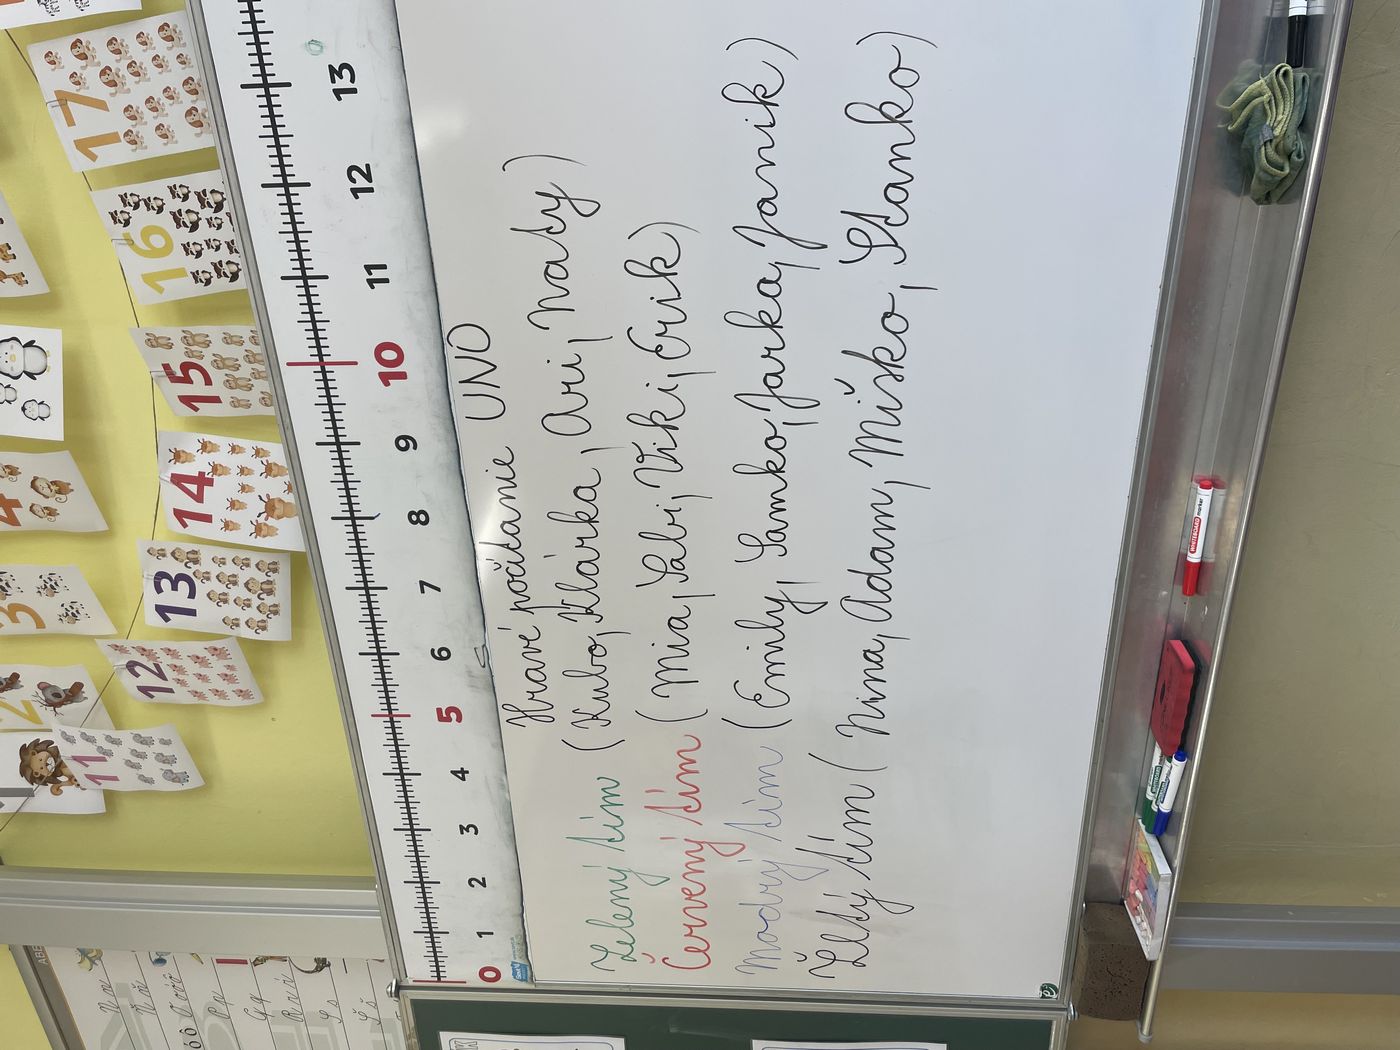 Hravé počítanie UNO
Zelený tím (Kubo, Klárka, Ari, Naty)
Červený tím (Mia, Sabi, Viki, Erik)
Modrý tím (Emily, Samko, Jarka, Janik)
Žltý tím (Nina, Adam, Miško, Stanko)
0 1 2 3 4 5 6 7 8 9 10 11 12 13
11 12 13 14 15 16 17
2 3 4
WHITEBOARD marker